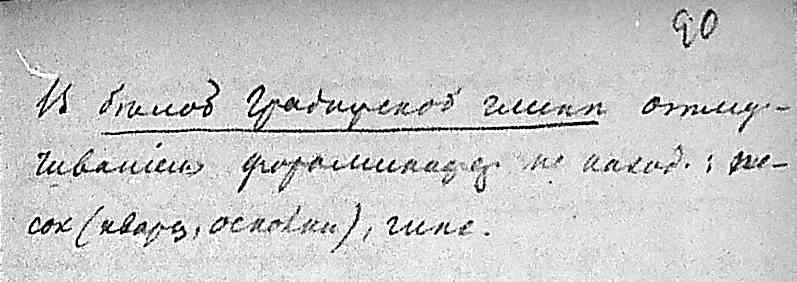 90
В бѣлой Градижской глинѣ отму-
чиваніемъ фораминифер не наход.; пе-
сок (кварц, осколки), гипс.